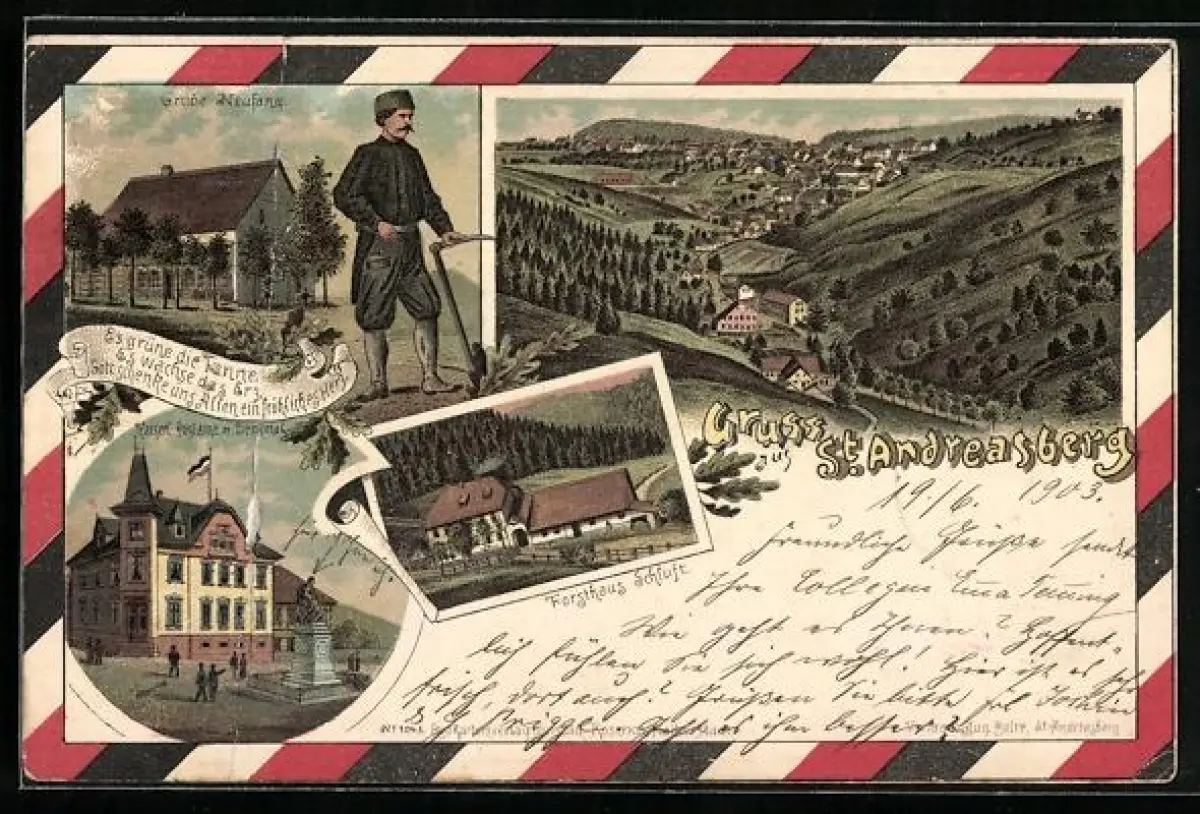 Grube Neufang.
Es grüne die Tanne,
Es wachse das Erz
Gott schenke uns Allen ein fröhliches Herz
Kaiser u. Denkmal
Gruss aus St. Andreasberg
Forsthaus Schluft
19./6. 1903.
Freundliche Grüße sendet
Ihre Collegin
Wie geht es Ihnen? Hoffent-
lich fühlen Sie sich wohl! Hier ist es sehr
frisch, dort auch? Grüßen Sie bitte
Geht es ihm besser?
St. Andreasberg